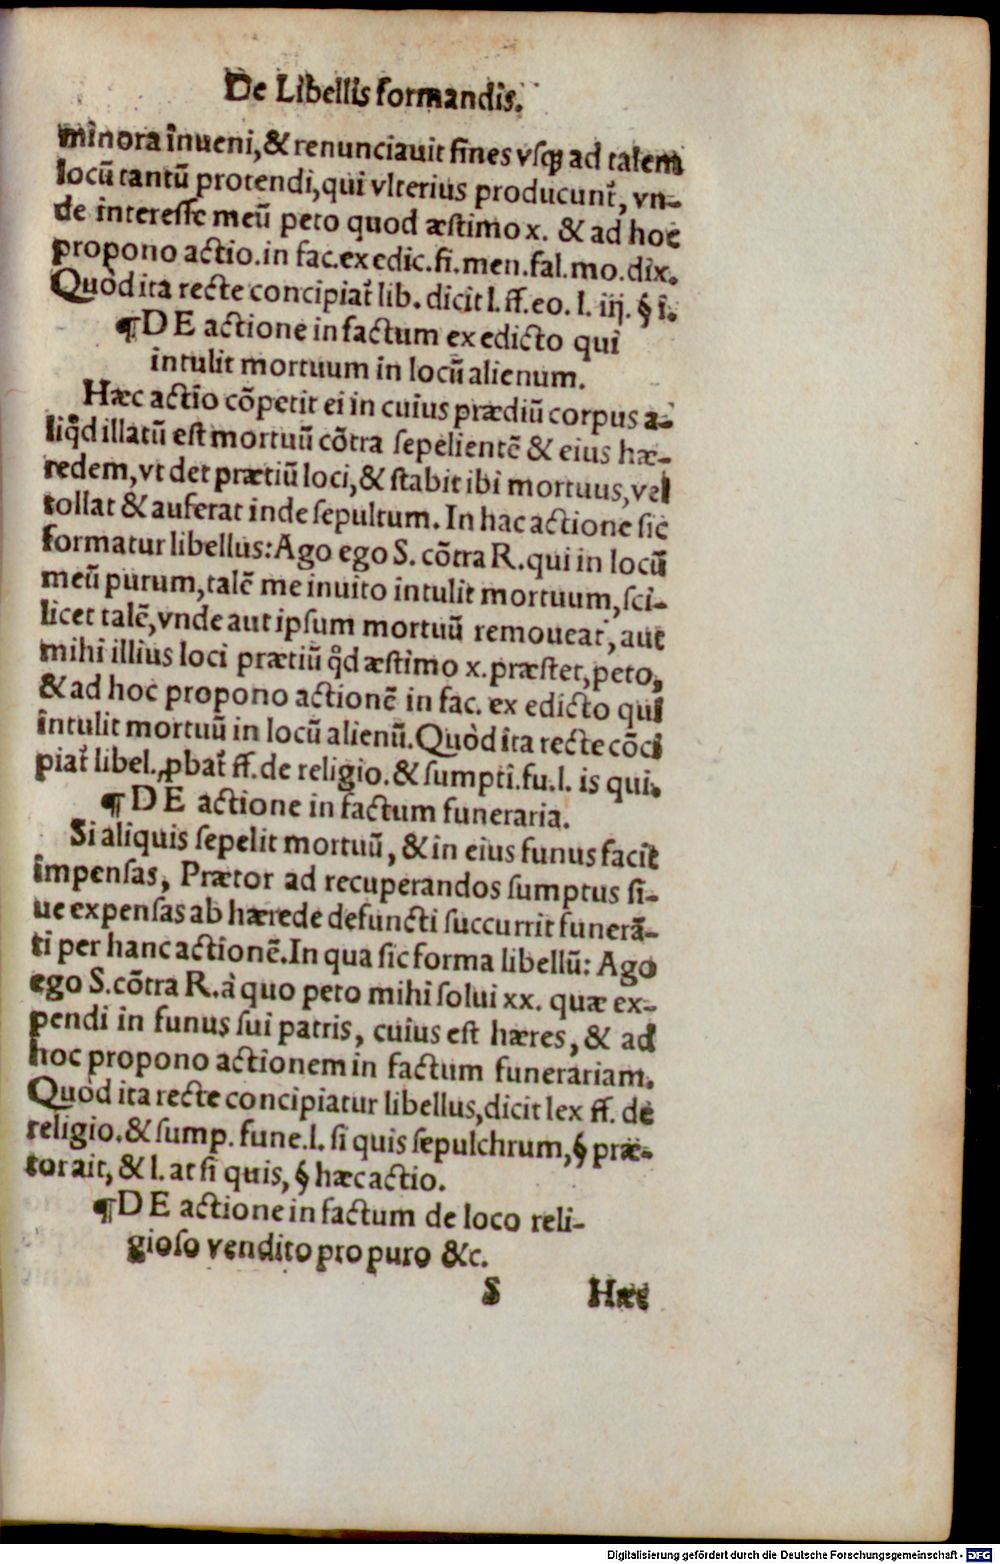 De Libellis formandis.
minora inueni, & renunciauit fines vsq; ad talem
locū tantū protendi, qui vlterius producunt᷑, vn-
de interesse meū peto quod æstimo x. & ad hoc
propono actio. in fac. ex edic. si. men. fal. mo. dix.
Quòd ita recte concipiat᷑ lib. dicit l. ff. eo. l. iij. § i.
¶ DE actione in factum ex edicto qui
intulit mortuum in locū alienum.
Hæc actio cōpetit ei in cuius prædiū corpus a-
liq̊d illatū est mortuū cōtra sepelientē & eius hæ-
redem, vt det prætiū loci, & stabit ibi mortuus, vel
tollat & auferat inde sepultum. In hac actione sic
formatur libellus: Ago ego S. cōtra R. qui in locū
meū purum, talē me inuito intulit mortuum, sci-
licet talē, vnde aut ipsum mortuū remoueat, aut
mihi illius loci prætiū q̊d æstimo x. præstet, peto,
& ad hoc propono actionē in fac. ex edicto qui
intulit mortuū in locū alienū. Quòd ita recte cōci
piat᷑ libel., ꝓbat᷑ ff. de religio. & sumpti. fu. l. is qui.
¶ DE actione in factum funeraria.
Si aliquis sepelit mortuū, & in eius funus facit
impensas, Prætor ad recuperandos sumptus si-
ue expensas ab hærede defuncti succurrit funerā-
ti per hanc actionē. In qua sic forma libellū: Ago
ego S. cōtra R. à quo peto mihi solui xx. quæ ex-
pendi in funus sui patris, cuius est hæres, & ad
hoc propono actionem in factum funerariam.
Quòd ita recte concipiatur libellus, dicit lex ff. de
religio. & sump. fune. l. si quis sepulchrum, § præ-
tor ait, & l. at si quis, § hæc actio.
¶ DE actione in factum de loco reli-
gioso vendito pro puro &c.
S Hæc
Digitalisierung gefördert durch die Deutsche Forschungsgemeinschaft - DFG